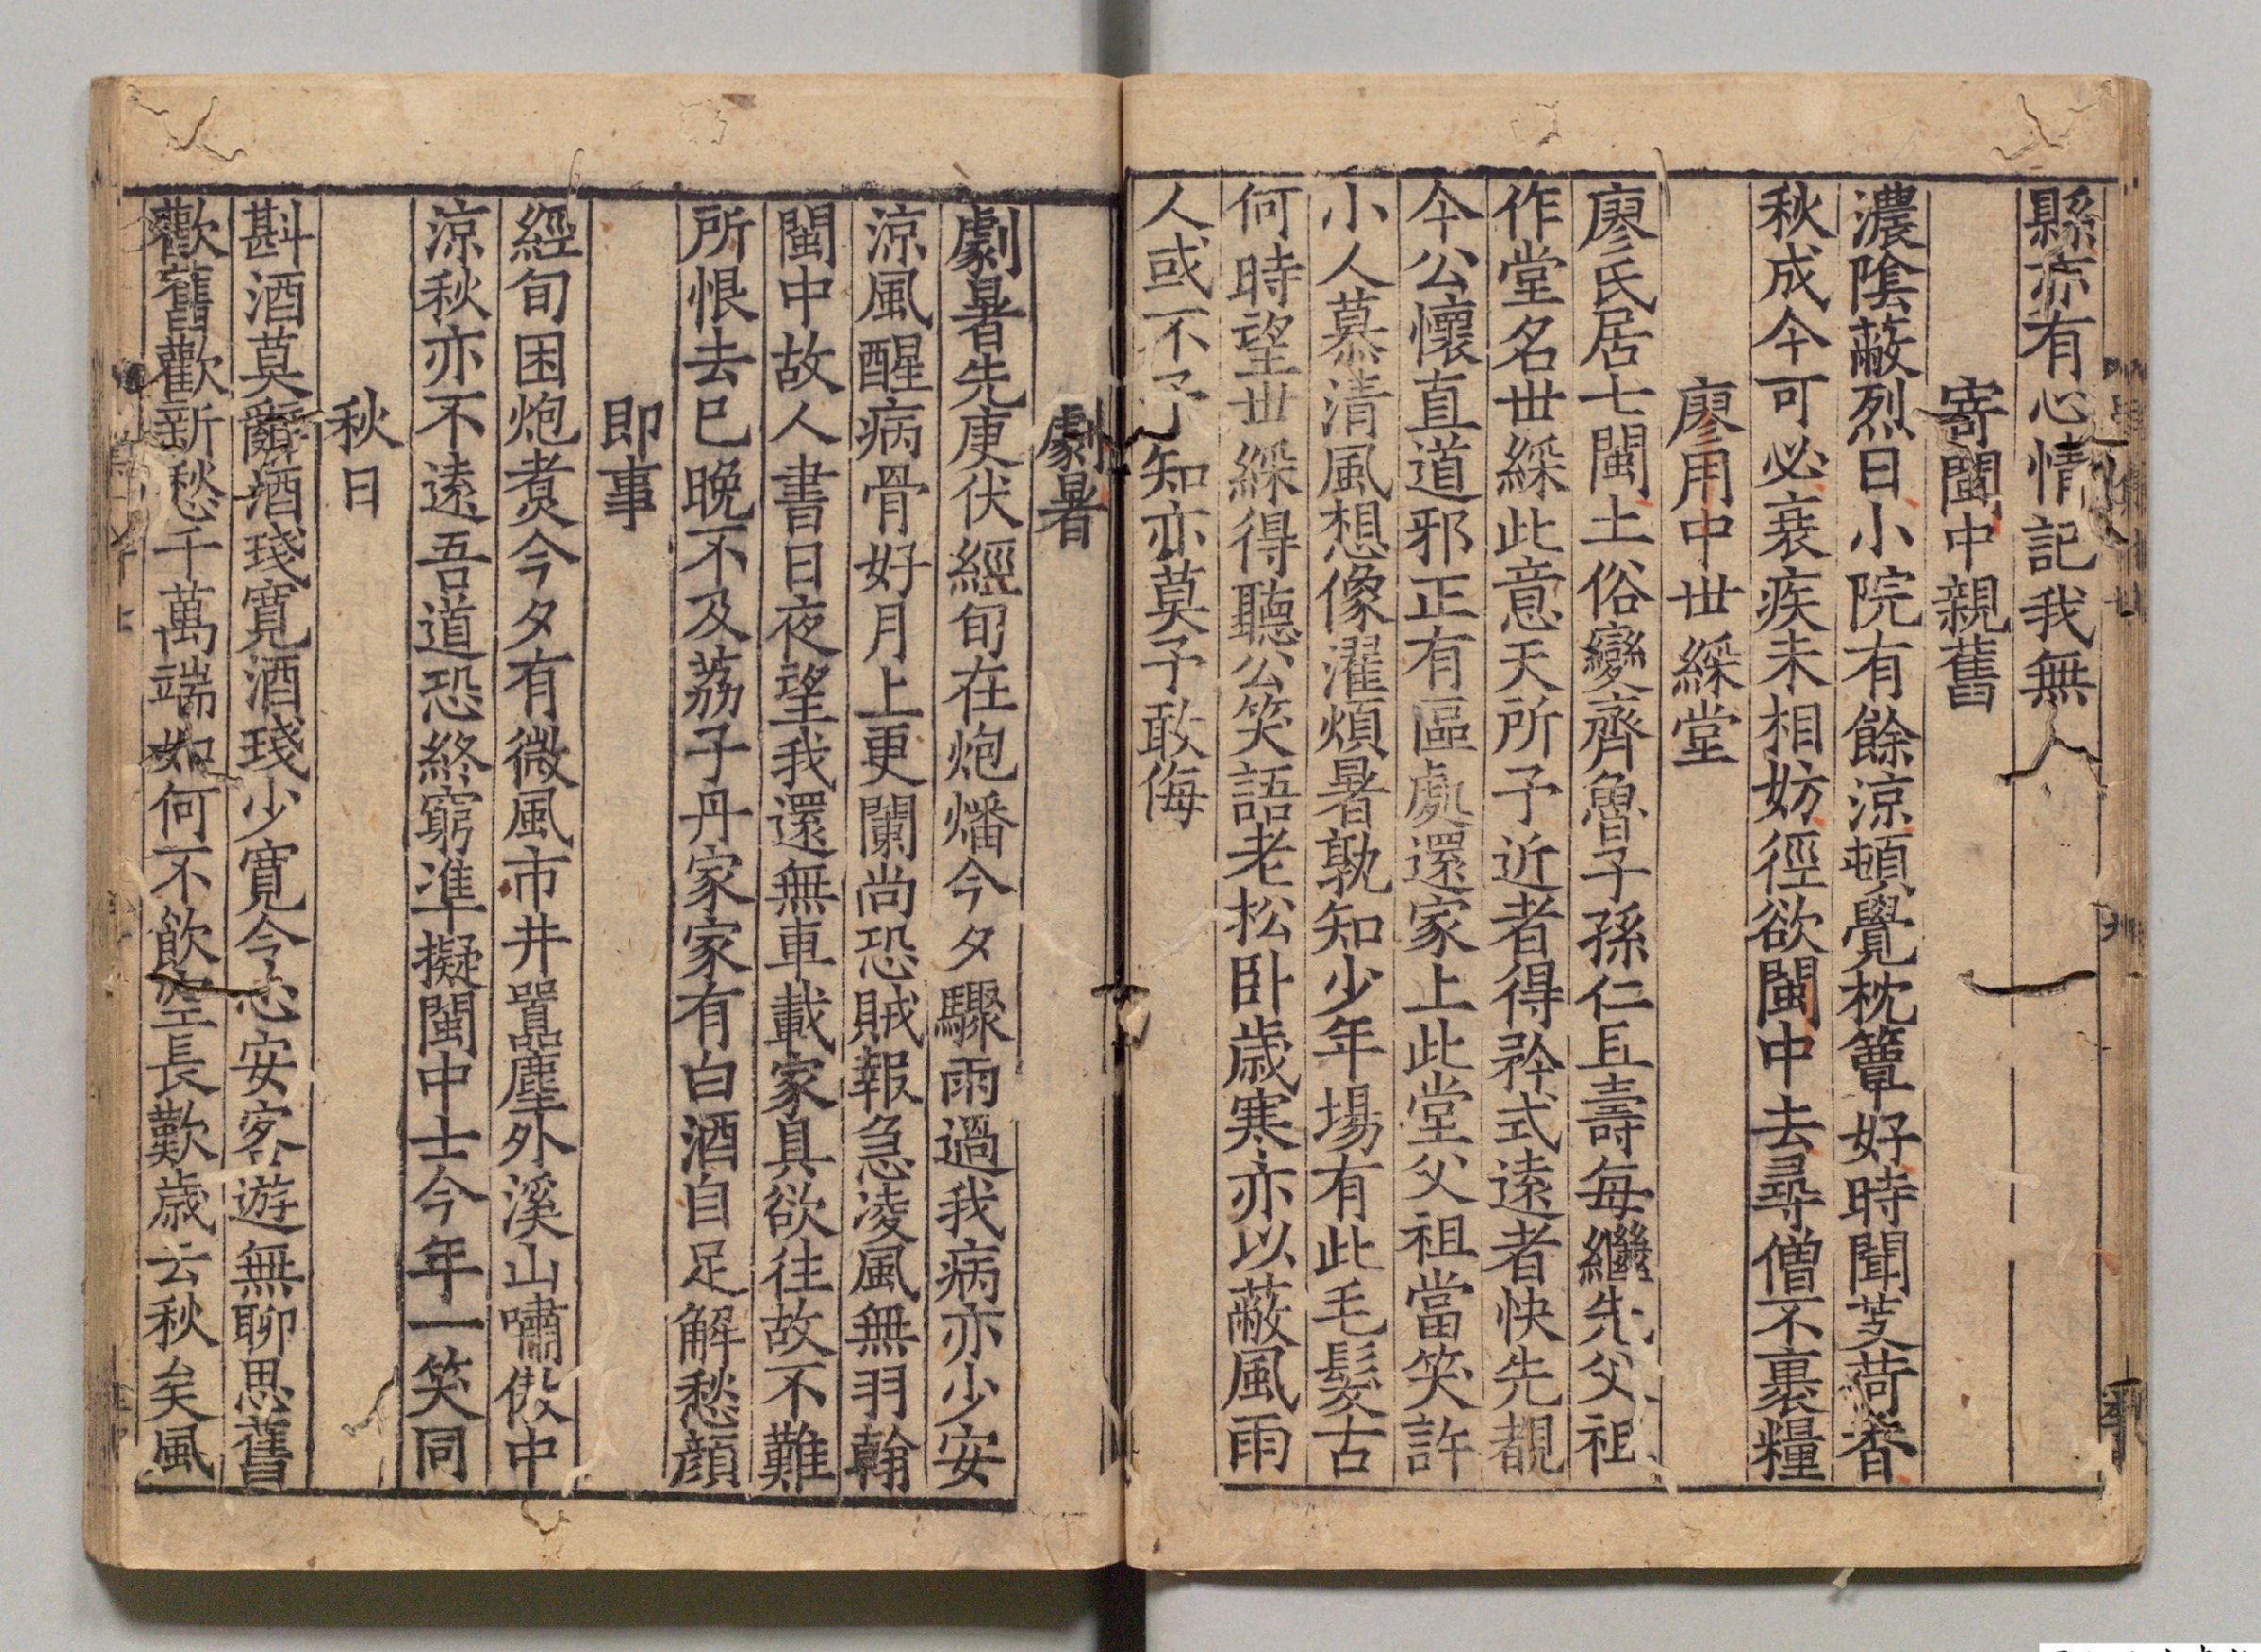 縣亦有心情記我無
寄閩中親舊
濃陰蔽烈日小院有餘涼頓覺枕簟好時聞芰荷香
秋成今可必衰疾未相妨徑欲閩中去尋僧不裹糧
廖用中世綵堂
廖氏居七閩土俗變齊魯子孫仁且壽每繼先父祖
作堂名世綵此意天所予近者得矜式遠者快先覩
今公懷直道邪正有區處還家上此堂父祖當笑許
小人慕清風想像濯煩暑孰知少年場有此毛髮古
何時望世綵得聽公笑語老松卧歲寒亦以蔽風雨
人或不予知亦莫予敢侮
劇暑
劇暑先庚伏經旬在炮燔今夕驟雨過我病亦少安
涼風醒病骨好月上更闌尚恐賊報急凌風無羽翰
閩中故人書日夜望我還無車載家具欲往故不難
所恨去已晚不及荔子丹家家有白酒自足解愁顔
即事
經旬困炮煑今夕有微風市井囂塵外溪山嘯傲中
涼秋亦不遠吾道恐終窮準擬閩中士今年一笑同
秋日
斟酒莫辭酒琖寬酒琖少寛令志安客遊無聊思舊
歡舊歡新愁千萬端如何不飲空長歎歲云秋矣風